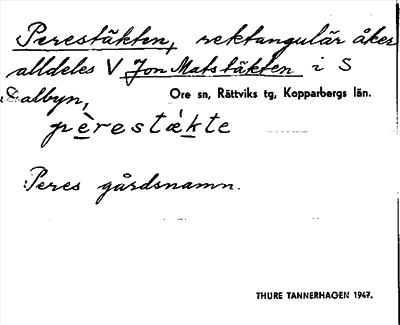 Perestäkten, rektangulär åker
alldeles V Jon Matstäkten i S
Dalbyn,
Ore sn, Rättviks tg, Kopparbergs län.
pèrestákte
Peres gårdsnamn.
THURE TANNERHAGEN 1947.